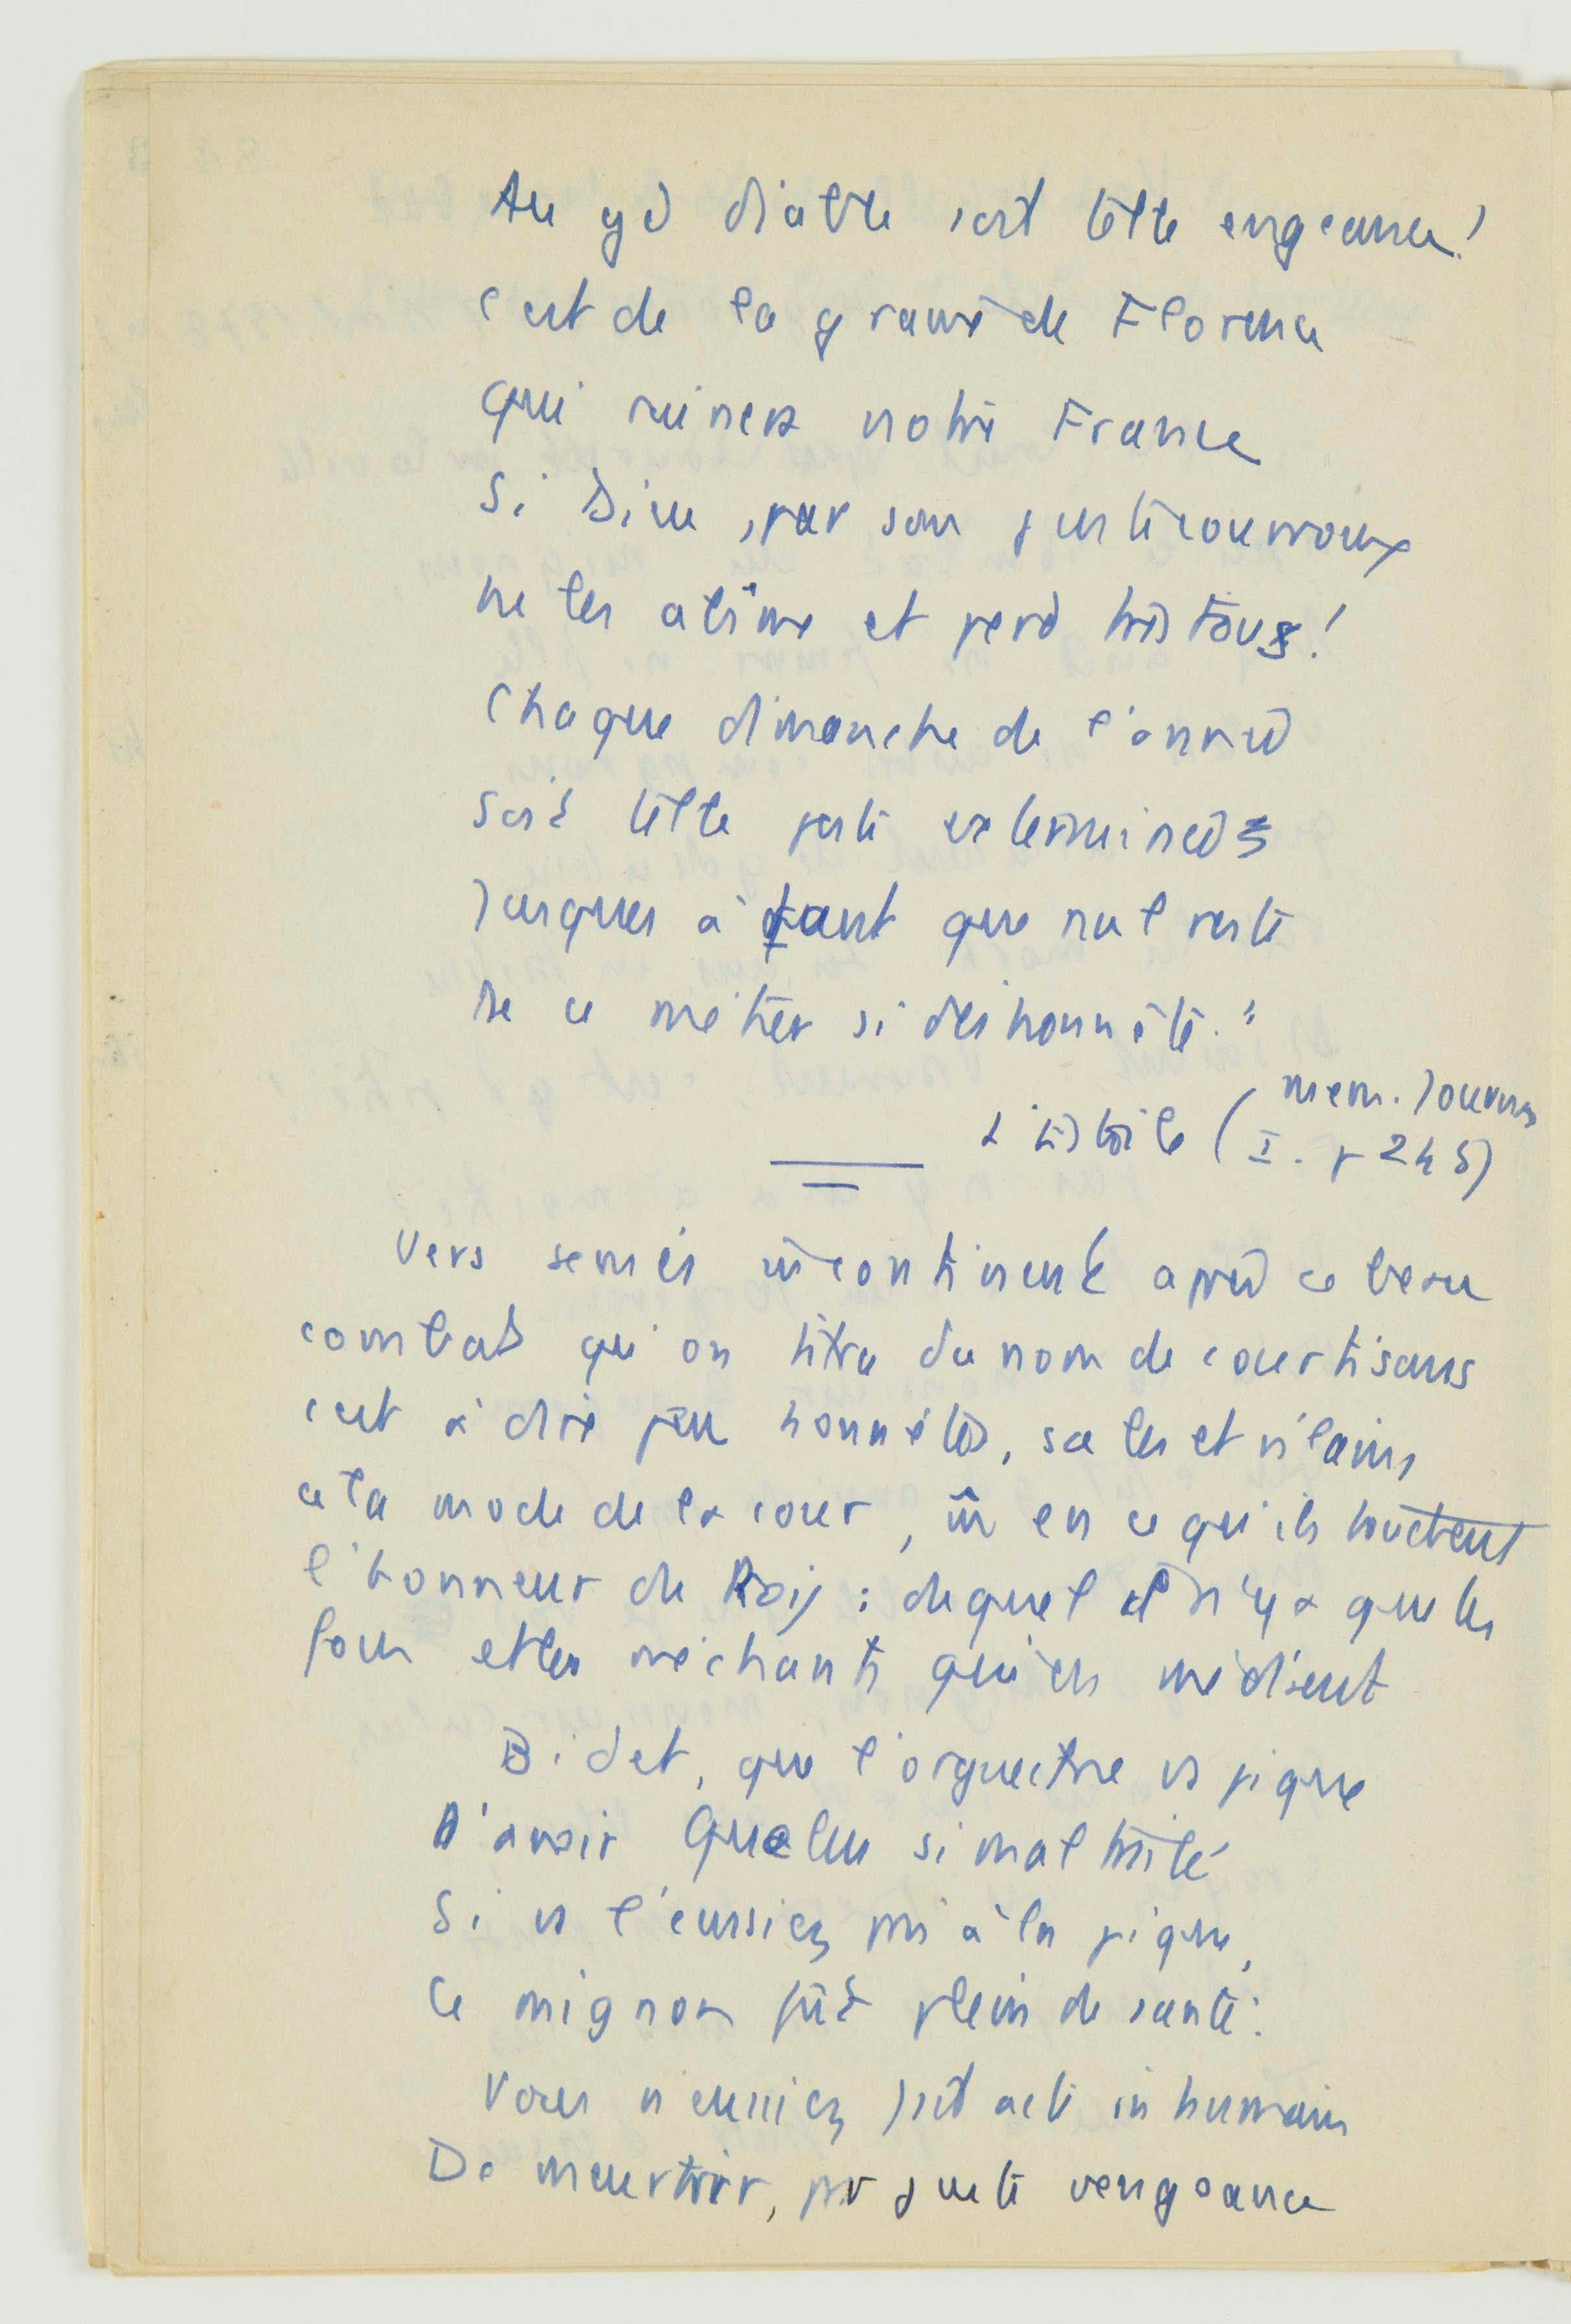 Au gd diable soit telle engeance!
c'est de la graine de Florence
qui ruinera notre France
Si Dieu, par son juste courroux
ne les abîme et perd très tous!
Chaque dimanche de l'année
soit telle peste exterminée
Jusques à tant que nul reste
De ce métier si deshonnête."
L'Estoile (mem. Journaux
I. p 245)
Vers semés incontinent après ce beau
combat qu'on titra du nom de courtisans
c'est à dire peu honnêtes, sales et vilains
à la mode de la cour, en ce qu'ils touchent
l'honneur du Roy : duquel il n'y a que les
fous et les méchants qui en médisent
Bidet, que l'orguectre vs pique
D'avoir Quelus si mal traité
Si vs l'eussiez pris à la pique,
Ce mignon fût plein de santé :
Vous n'eussiez fait acte inhumain
De meurtrir, par juste vengeance